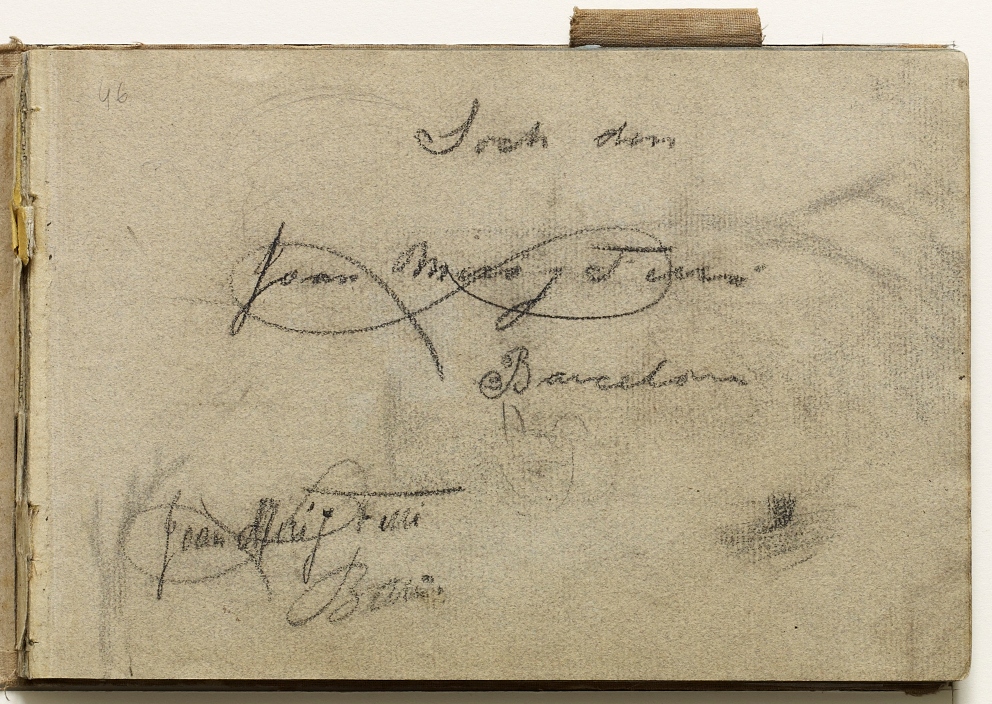 46
Soch den
Joan Miró y Ferrà
Barcelona
Joan Miró y Ferrà